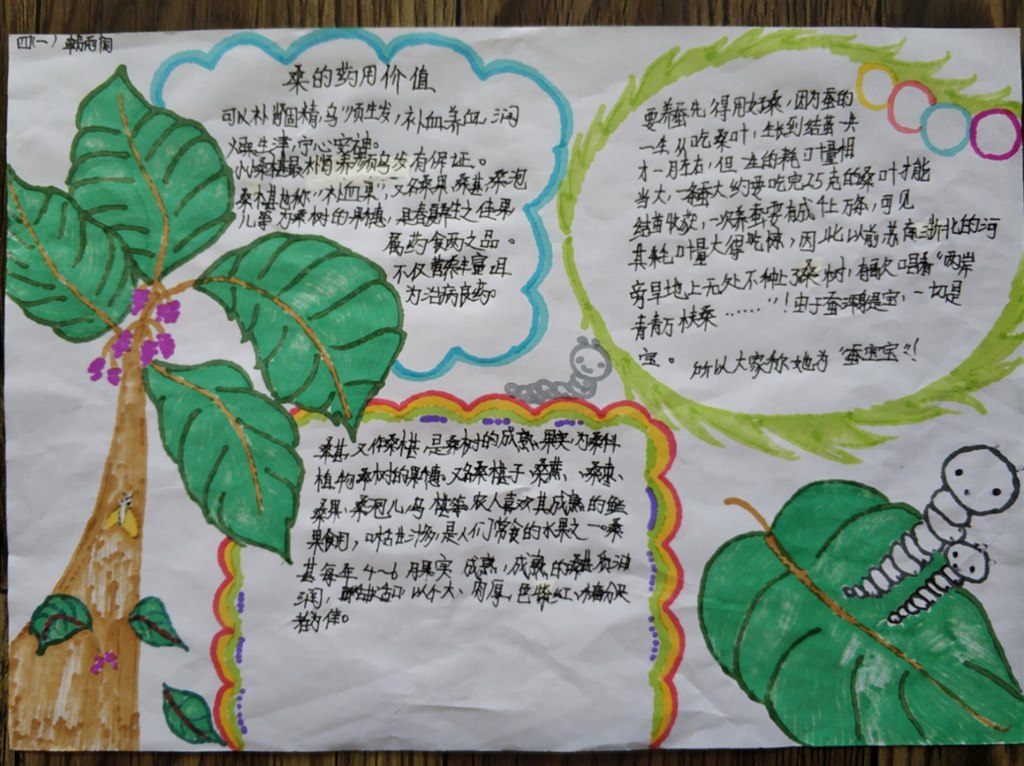 四(一)
桑的药用价值
可以补肾固精,乌须生发,补血养血,润
燥生津,宁心安神。
补肾养须乌发有保证。
桑椹也称“补血果”,又名桑果、桑葚、桑泡
儿等为桑树的果穗,具有养生之佳果,
属药食两之品。
不仅营养丰富,且
为治病良药。
要养蚕先得用好桑,因为蚕的
一生从吃桑叶,生长到结茧一共
才一月左右,但一生的耗叶量相
当大,一条蚕大约要吃完25克的桑叶才能
结茧收获,一次养蚕要有成千上万条,可见
其耗叶量大得吃惊,因此以前苏南浙北的河
旁旱地上无处不种上了桑树,有歌唱着“两岸
青青万枝桑……”!由于蚕浑身是宝,一切是
宝。 所以大家称她为“蚕宝宝”!
桑葚,又作桑椹,是桑树的成熟果实,为桑科
植物桑树的果穗。又名桑椹子、桑蔗、桑枣、
桑果、桑泡儿,乌椹等,农人喜欢其成熟的鲜
果食用,味甜汁多,是人们常食的水果之一。桑
葚每年4~6月果实成熟,成熟的桑葚质油
润,酸甜适口,以个大、肉厚、色紫红、糖分足
者为佳。